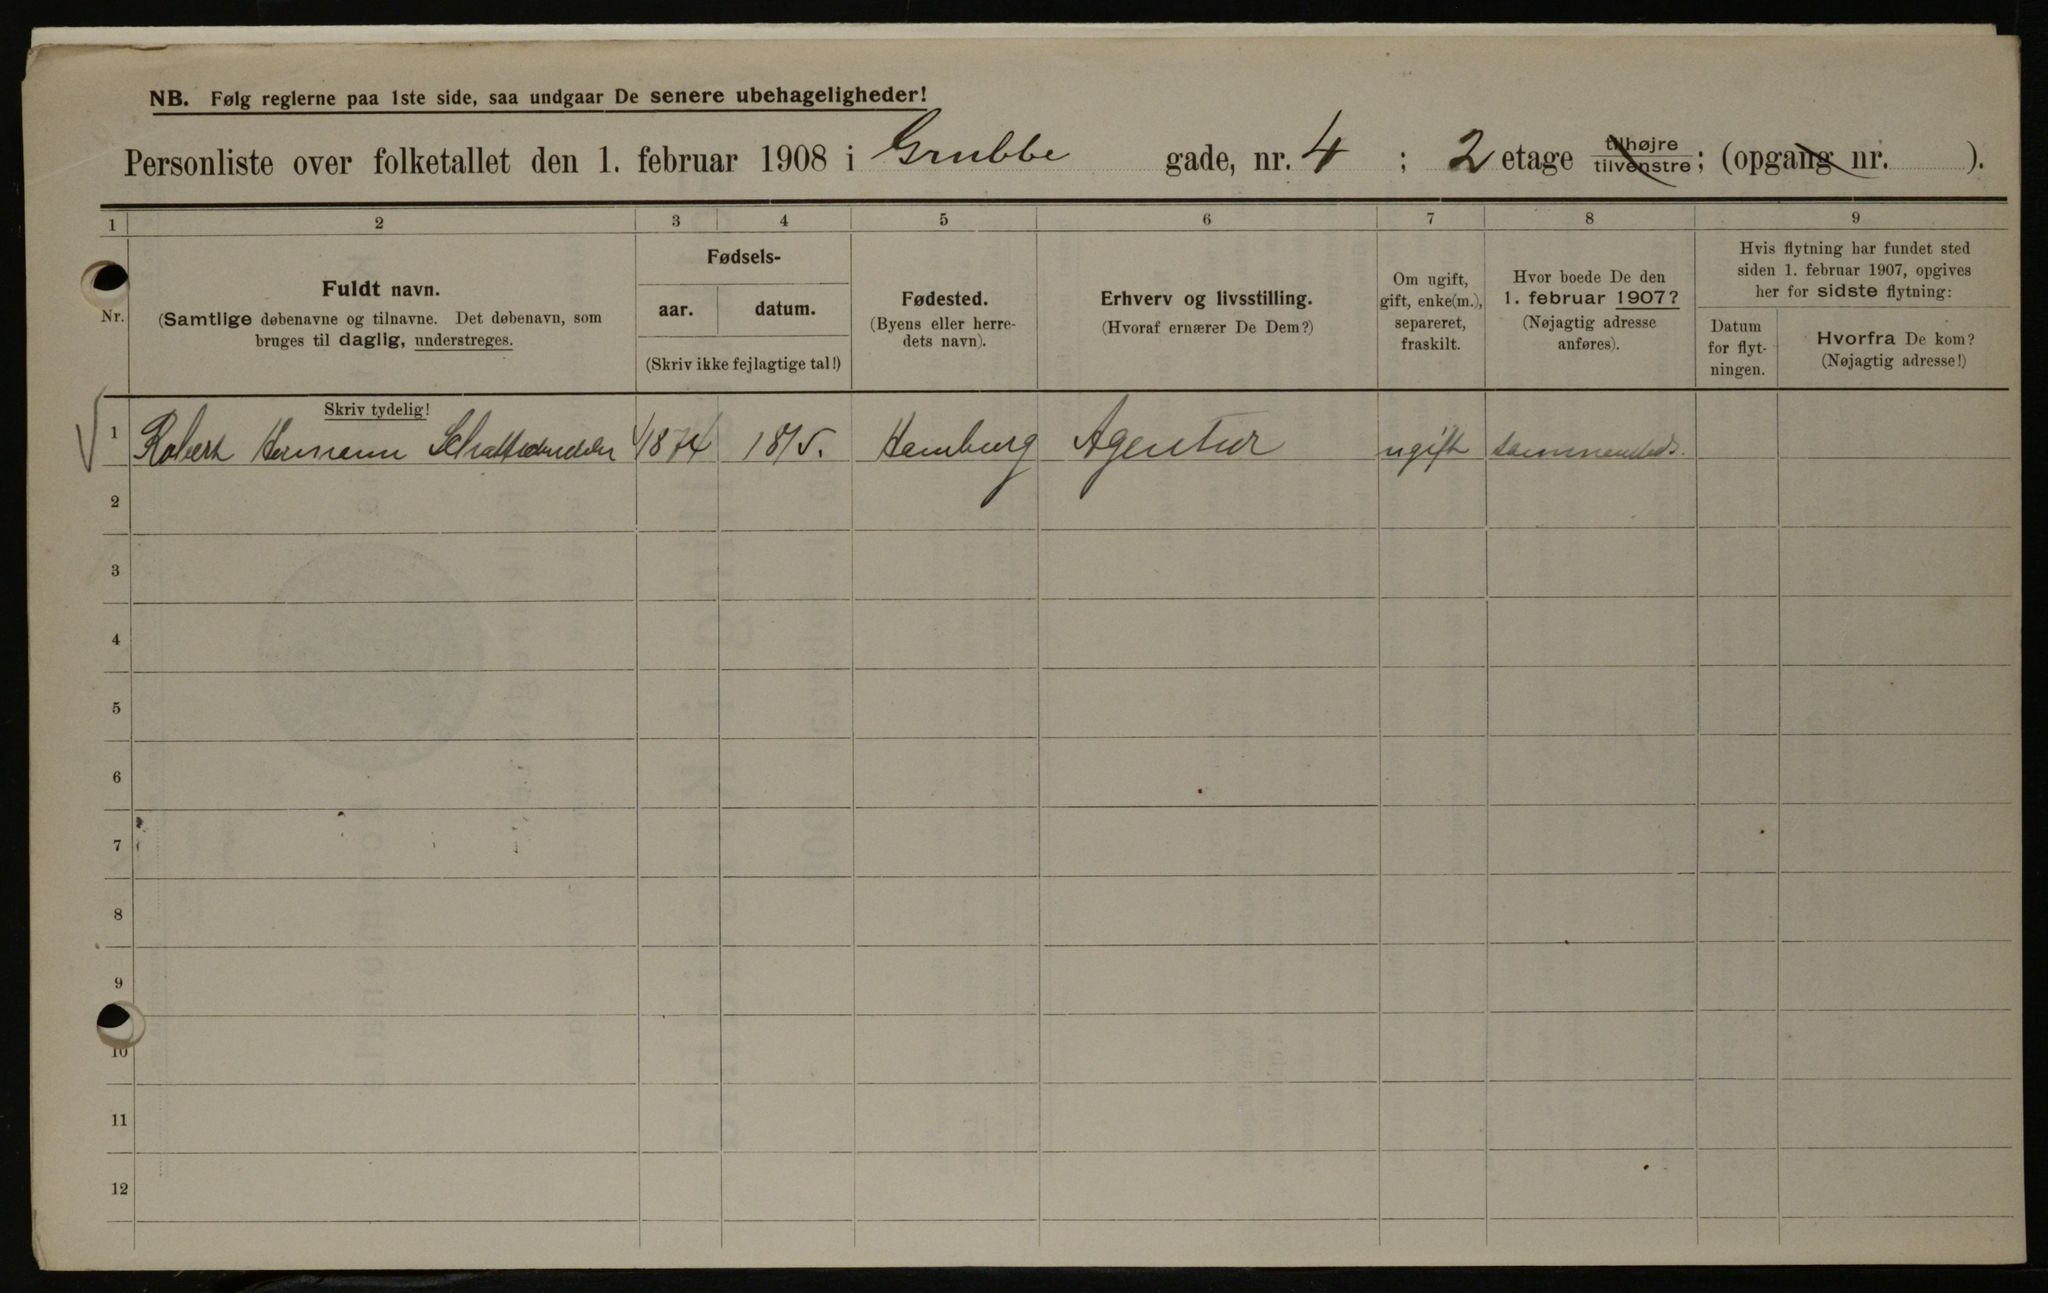 NB. Følg reglerne paa 1ste side, saa undgaar De senere ubehageligheder!
Personliste over folketallet den 1. februar 1908 i Grubbe gade, nr. 4 ; 2 etage tilhøjre tilvenstre ; (opgang nr. ).
1 2 3 4 5 6 7 8 9
Nr.
Fuldt navn.
(Samtlige døbenavne og tilnavne. Det døbenavn, som
bruges til daglig, understreges.
Fødsels-
aar. datum.
(Skriv ikke fejlagtige tal!)
Fødested.
(Byens eller herre-
dets navn).
Erhverv og livsstilling.
(Hvoraf ernærer De Dem?)
Om ugift,
gift, enke(m.),
separeret,
fraskilt.
Hvor boede De den
1. februar 1907?
(Nøjagtig adresse
anføres).
Hvis flytning har fundet sted
siden 1. februar 1907, opgives
her for sidste flytning:
Datum
for flyt-
ningen.
Hvorfra De kom?
(Nøjagtig adresse!)
Skriv tydelig!
1 Robert Hermann 1874 18/5. Hamburg Agentur ugift sammesteds.
2
3
4
5
6
7
8
9
10
11
12